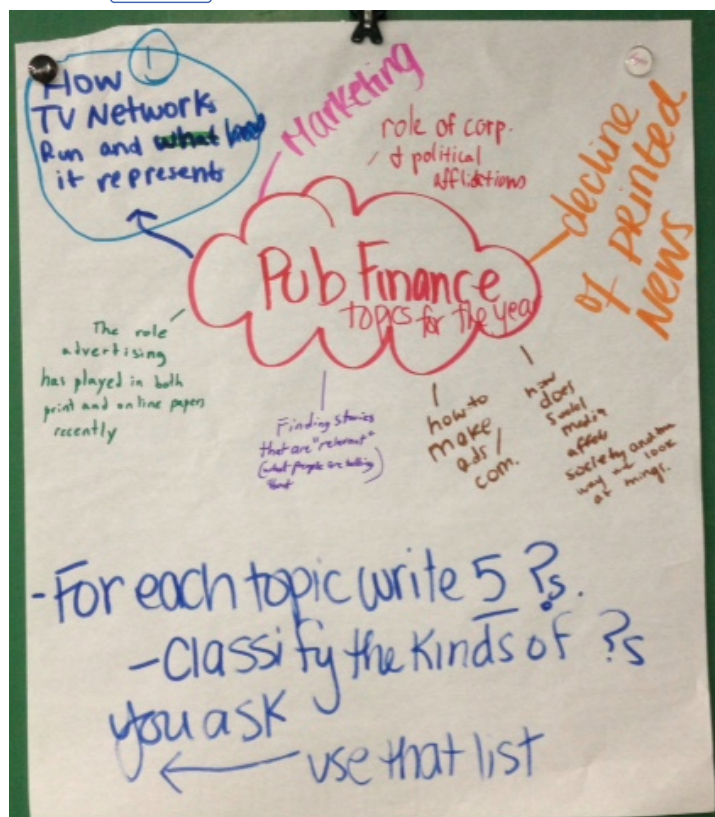 1
How
TV Networks
Run and what
it represents
Marketing
role of corp.
& political
affiliations
decline
of printed
News
Pub Finance
topics for the year
The role
advertising
has played in both
print and online papers
recently
Finding stories
that are "relevant"
(what people are talking
how to
make
ads/
com.
how
does
social
media
affect
society and the
way we look
at things.
-For each topic write 5 ?s.
-Classify the kinds of ?s
you ask
use that list